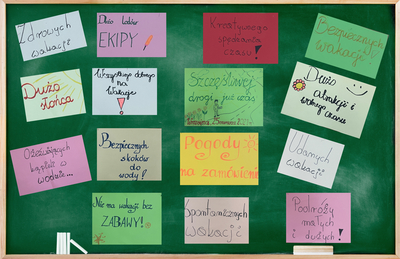 Zdrowych
wakacji!
Dużo lodów
EKIPY
Kreatywnego
spędzania
czasu!
Bezpiecznych
wakacji!
Dużo
słońca
Wszystkiego dobrego
na
Wakacje
!
Szczęśliwej
drogi, już czas
Dużo
atrakcji i
wolnego czasu
Orzeźwiających
kąpieli w
wodzie...
Bezpiecznych
skoków
do
wody!
Pogody
na zamówienie
Udanych
wakacji
Nie ma wakacji bez
ZABAWY!
Spontanicznych
wakacji
Podróży
małych
i dużych!